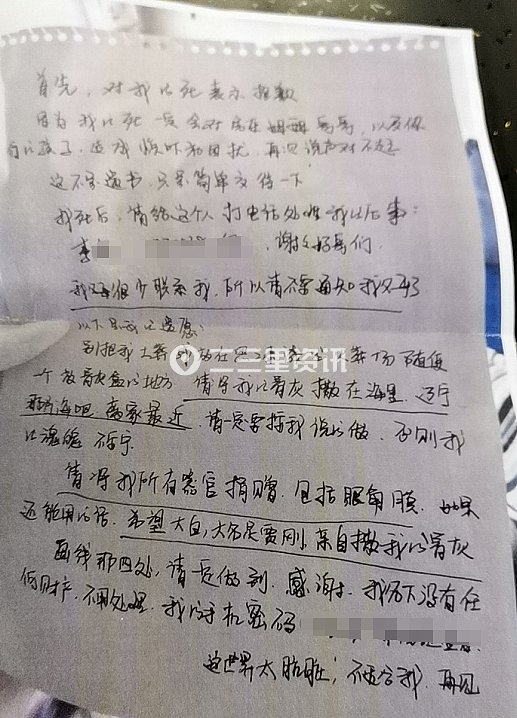 首先，对我的死表示抱歉
因为我的死一定会对房东姐姐哥哥，以及你
们的孩子，造成惊吓和困扰，再次说声对不起
这不是遗书，只是简单交待一下
我死后，请给这个人打电话处理我的后事：
李 谢谢好哥们.
我父亲很少联系我，所以请不要通知我父亲了
以下是我的遗愿：
别把我土葬 随便
二三里资讯
一个放骨灰盒的地方 请将我的骨灰撒在海里 辽宁
那海吧 离家最近. 请一定要按我说的做，否则我
的魂魄不宁.
请将我所有器官捐赠，包括眼角膜，如果
还能用的话. 希望大白，大名是费刚，亲自撒我的骨灰
画线那四处，请一定做到，感谢. 我名下没有任
何财产，不用处理. 我的手机密码
这世界太肮脏，不适合我，再见